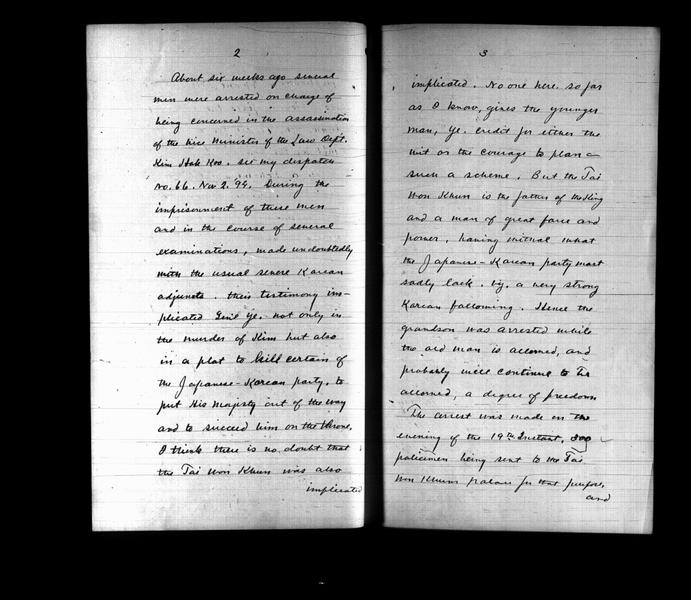 2
About six weeks ago several
men were arrested on charge of
being concerned in the assassination
of the Vice Minister of the Law Dept.
Kim Hak Koo. See my dispatch
No. 66. Nov 2. 94. During the
imprisonment of these men
and in the course of several
examinations, made undoubtedly
with the usual severe Korean
adjuncts. their testimony im-
plicated Gen'l Ye. not only in
the murder of Kim but also
in a plot to kill certain of
the Japanese-Korean party, to
put His Majesty out of the way
and to succeed him on the throne.
I think there is no doubt that
the Tai Won Khun was also
implicated
3
implicated. No one here. so far
as I know, gives the younger
man, Ye. credit for either the
wit or the courage to plan
such a scheme. But the Tai
Won Khun is the father of the King
and a man of great force and
power, having withal what
the Japanese-Korean party most
sadly lack. viz. a very strong
Korean following. Hence the
grandson was arrested while
the old man is allowed, and
probably will continue to be
allowed, a degree of freedom
The arrest was made on the
evening of the 19th Instant, 300
policemen being sent to the Tai
Won Khuns palace for that purpose,
and